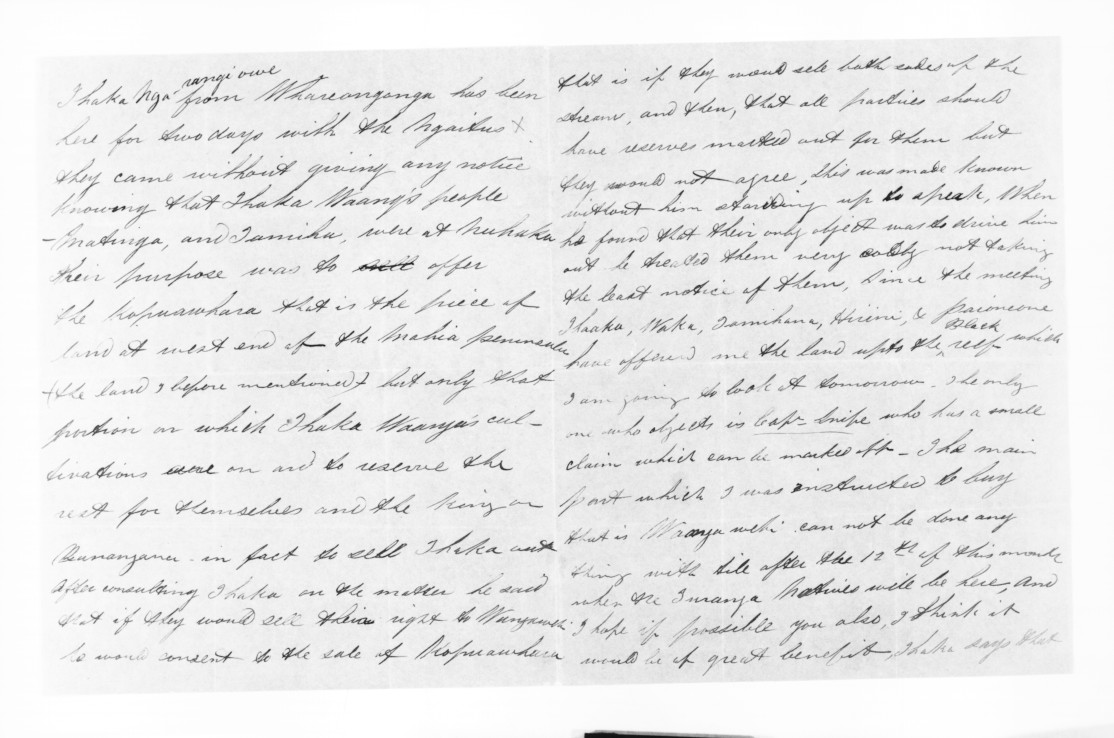 rangi owe
Ihaka Nga from Whareongonga has been
here for two days with the Ngaitus
they came without giving any notice
knowing that Ihaka Waanga's people
Matinga, and Tamihu, were at Nuhaka
their purpose was to sell offer
the Kopuawhara that is the piece of
land at west end of the Mahia peninsula
(the land I before mentioned) but only that
portion on which Ihaka Waanga's cul-
tivations were on and to reserve the
rest for themselves and the King or
in fact to sell Ihaka out
After consulting Ihaka on the matter he said
that if they would sell their right to Wangawehi
he would consent to the sale of Kopuawhara
that is if they would sell both sides of the
stream, and then, that all parties should
have reserves marked out for them but
they would not agree, this was made known
without him standing up to speak, When
he found that their only object was to drive him
out he treated them very coldly not taking
the least notice of them, Since the meeting
Ihaaka, Waka, Tamihana, Hirini, &
have offered me the land up to the Black reef which
I am going to look at tomorrow. The only
one who objects is Capn Snipe who has a small
claim which can be marked off - The main
part which I was instructed to buy
that is Waangawehi can not be done any
thing with till after the 12th of this month
when the Turanga Natives will be here, and
I hope if possible you also, I think it
would be of great benefit, Ihaka says that